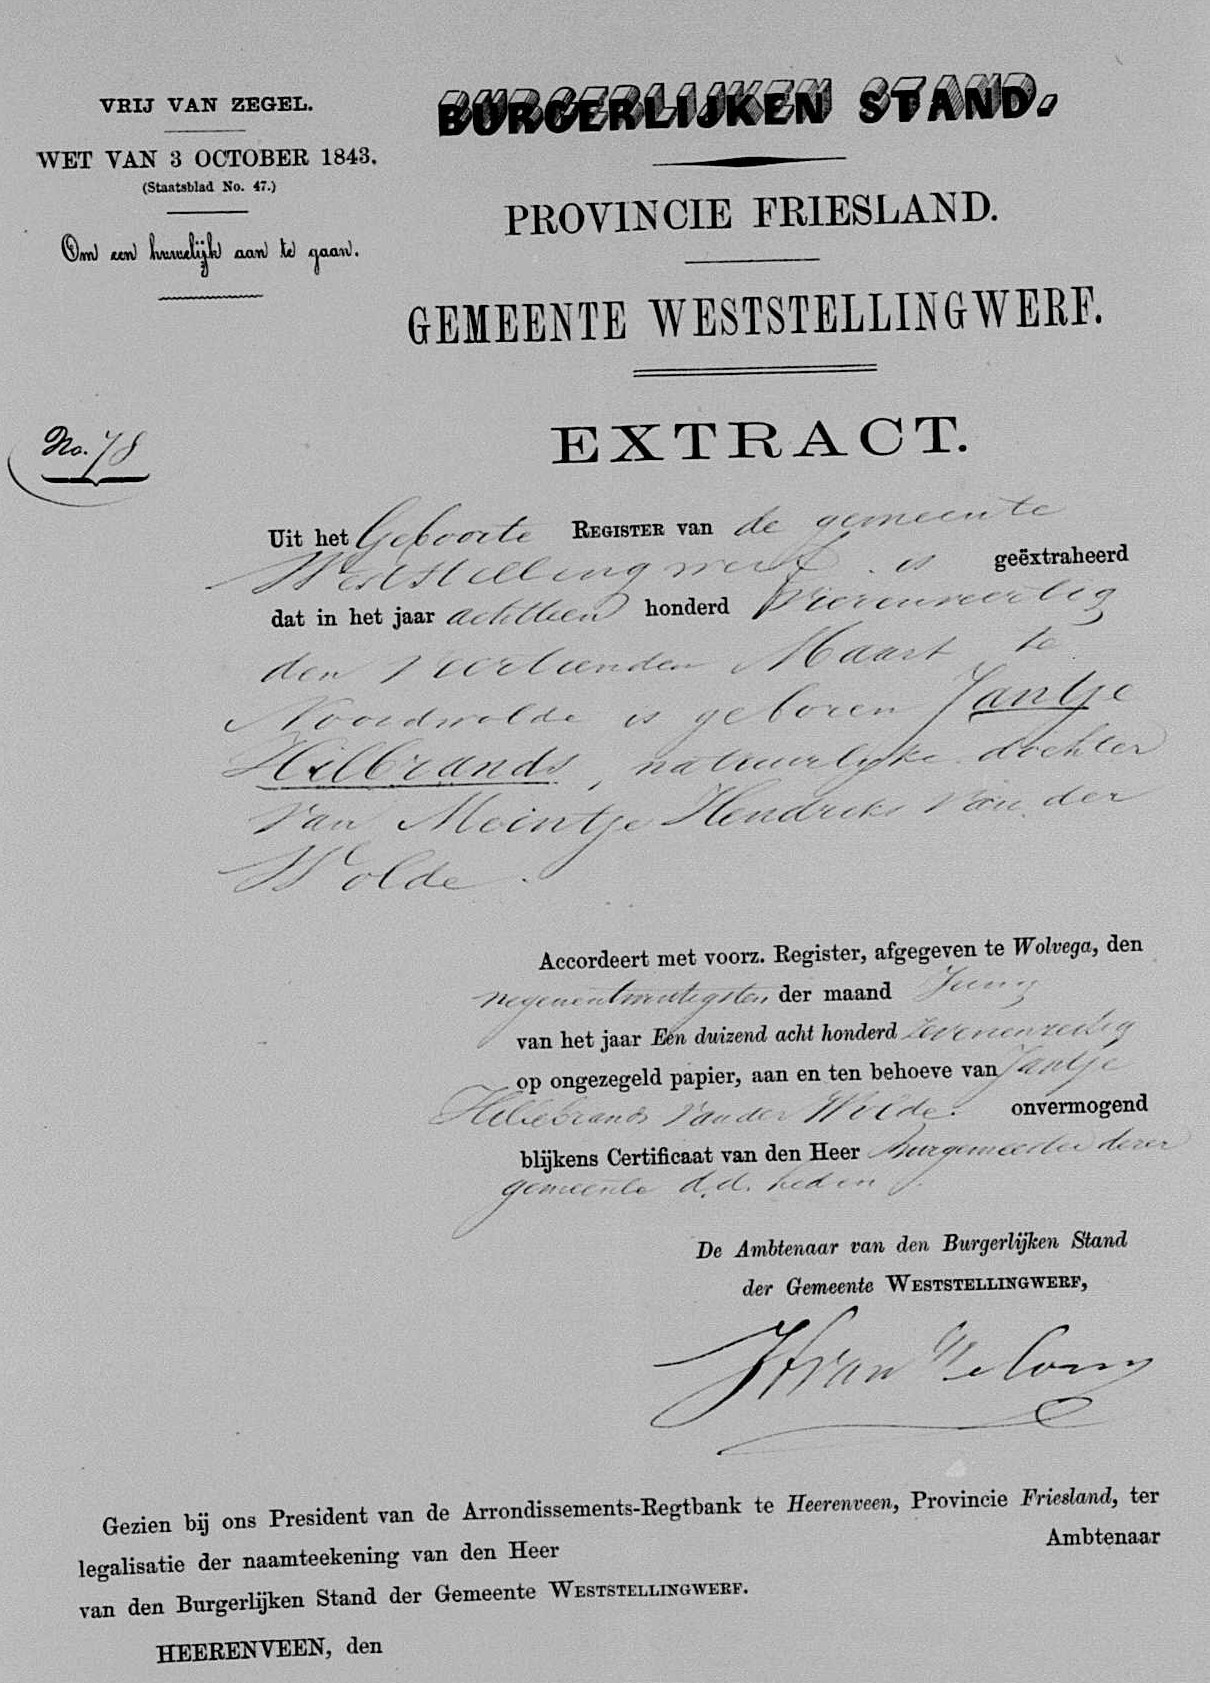 VRIJ VAN ZEGEL.
WET VAN 3 OCTOBER 1843.
(Staatsblad No. 47.)
Om een huwelijk aan te gaan.
BURGERLIJKEN STAND.
PROVINCIE FRIESLAND.
GEMEENTE WESTSTELLINGWERF.
EXTRACT.
No. 78
Uit het Geboorte REGISTER van de gemeente
Weststellingwerf is geëxtraheerd
dat in het jaar achttien honderd vierenveertig
den veertienden Maart te
Noordwolde is geboren Jantje
Hilbrands, natuurlyke dochter
van Meintje Hendriks van der
Wolde.
Accordeert met voorz. Register, afgegeven te Wolvega, den
negenentwintigsten der maand Juny
van het jaar Een duizend acht honderd zevenenzestig
op ongezegeld papier, aan en ten behoeve van Jantje
Hilbrands van der Wolde. onvermogend
blijkens Certificaat van den Heer Burgemeester dezer
gemeente d.d. heden.
De Ambtenaar van den Burgerlijken Stand
der Gemeente WESTSTELLINGWERF,
Gezien bij ons President van de Arrondissements-Regtbank te Heerenveen, Provincie Friesland, ter
legalisatie der naamteekening van den Heer Ambtenaar
van den Burgerlijken Stand der Gemeente WESTSTELLINGWERF.
HEERENVEEN, den